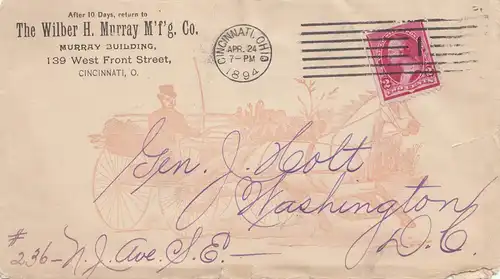 After 10 Days, return to
The Wilber H. Murray M'f'g. Co.
MURRAY BUILDING,
139 West Front Street,
CINCINNATI, O.
CINCINNATI, OHIO
APR. 24
7-PM
1894
Gen. J. Holt
Washington
D.C.
# 236 - N. J. Ave. S. E. -